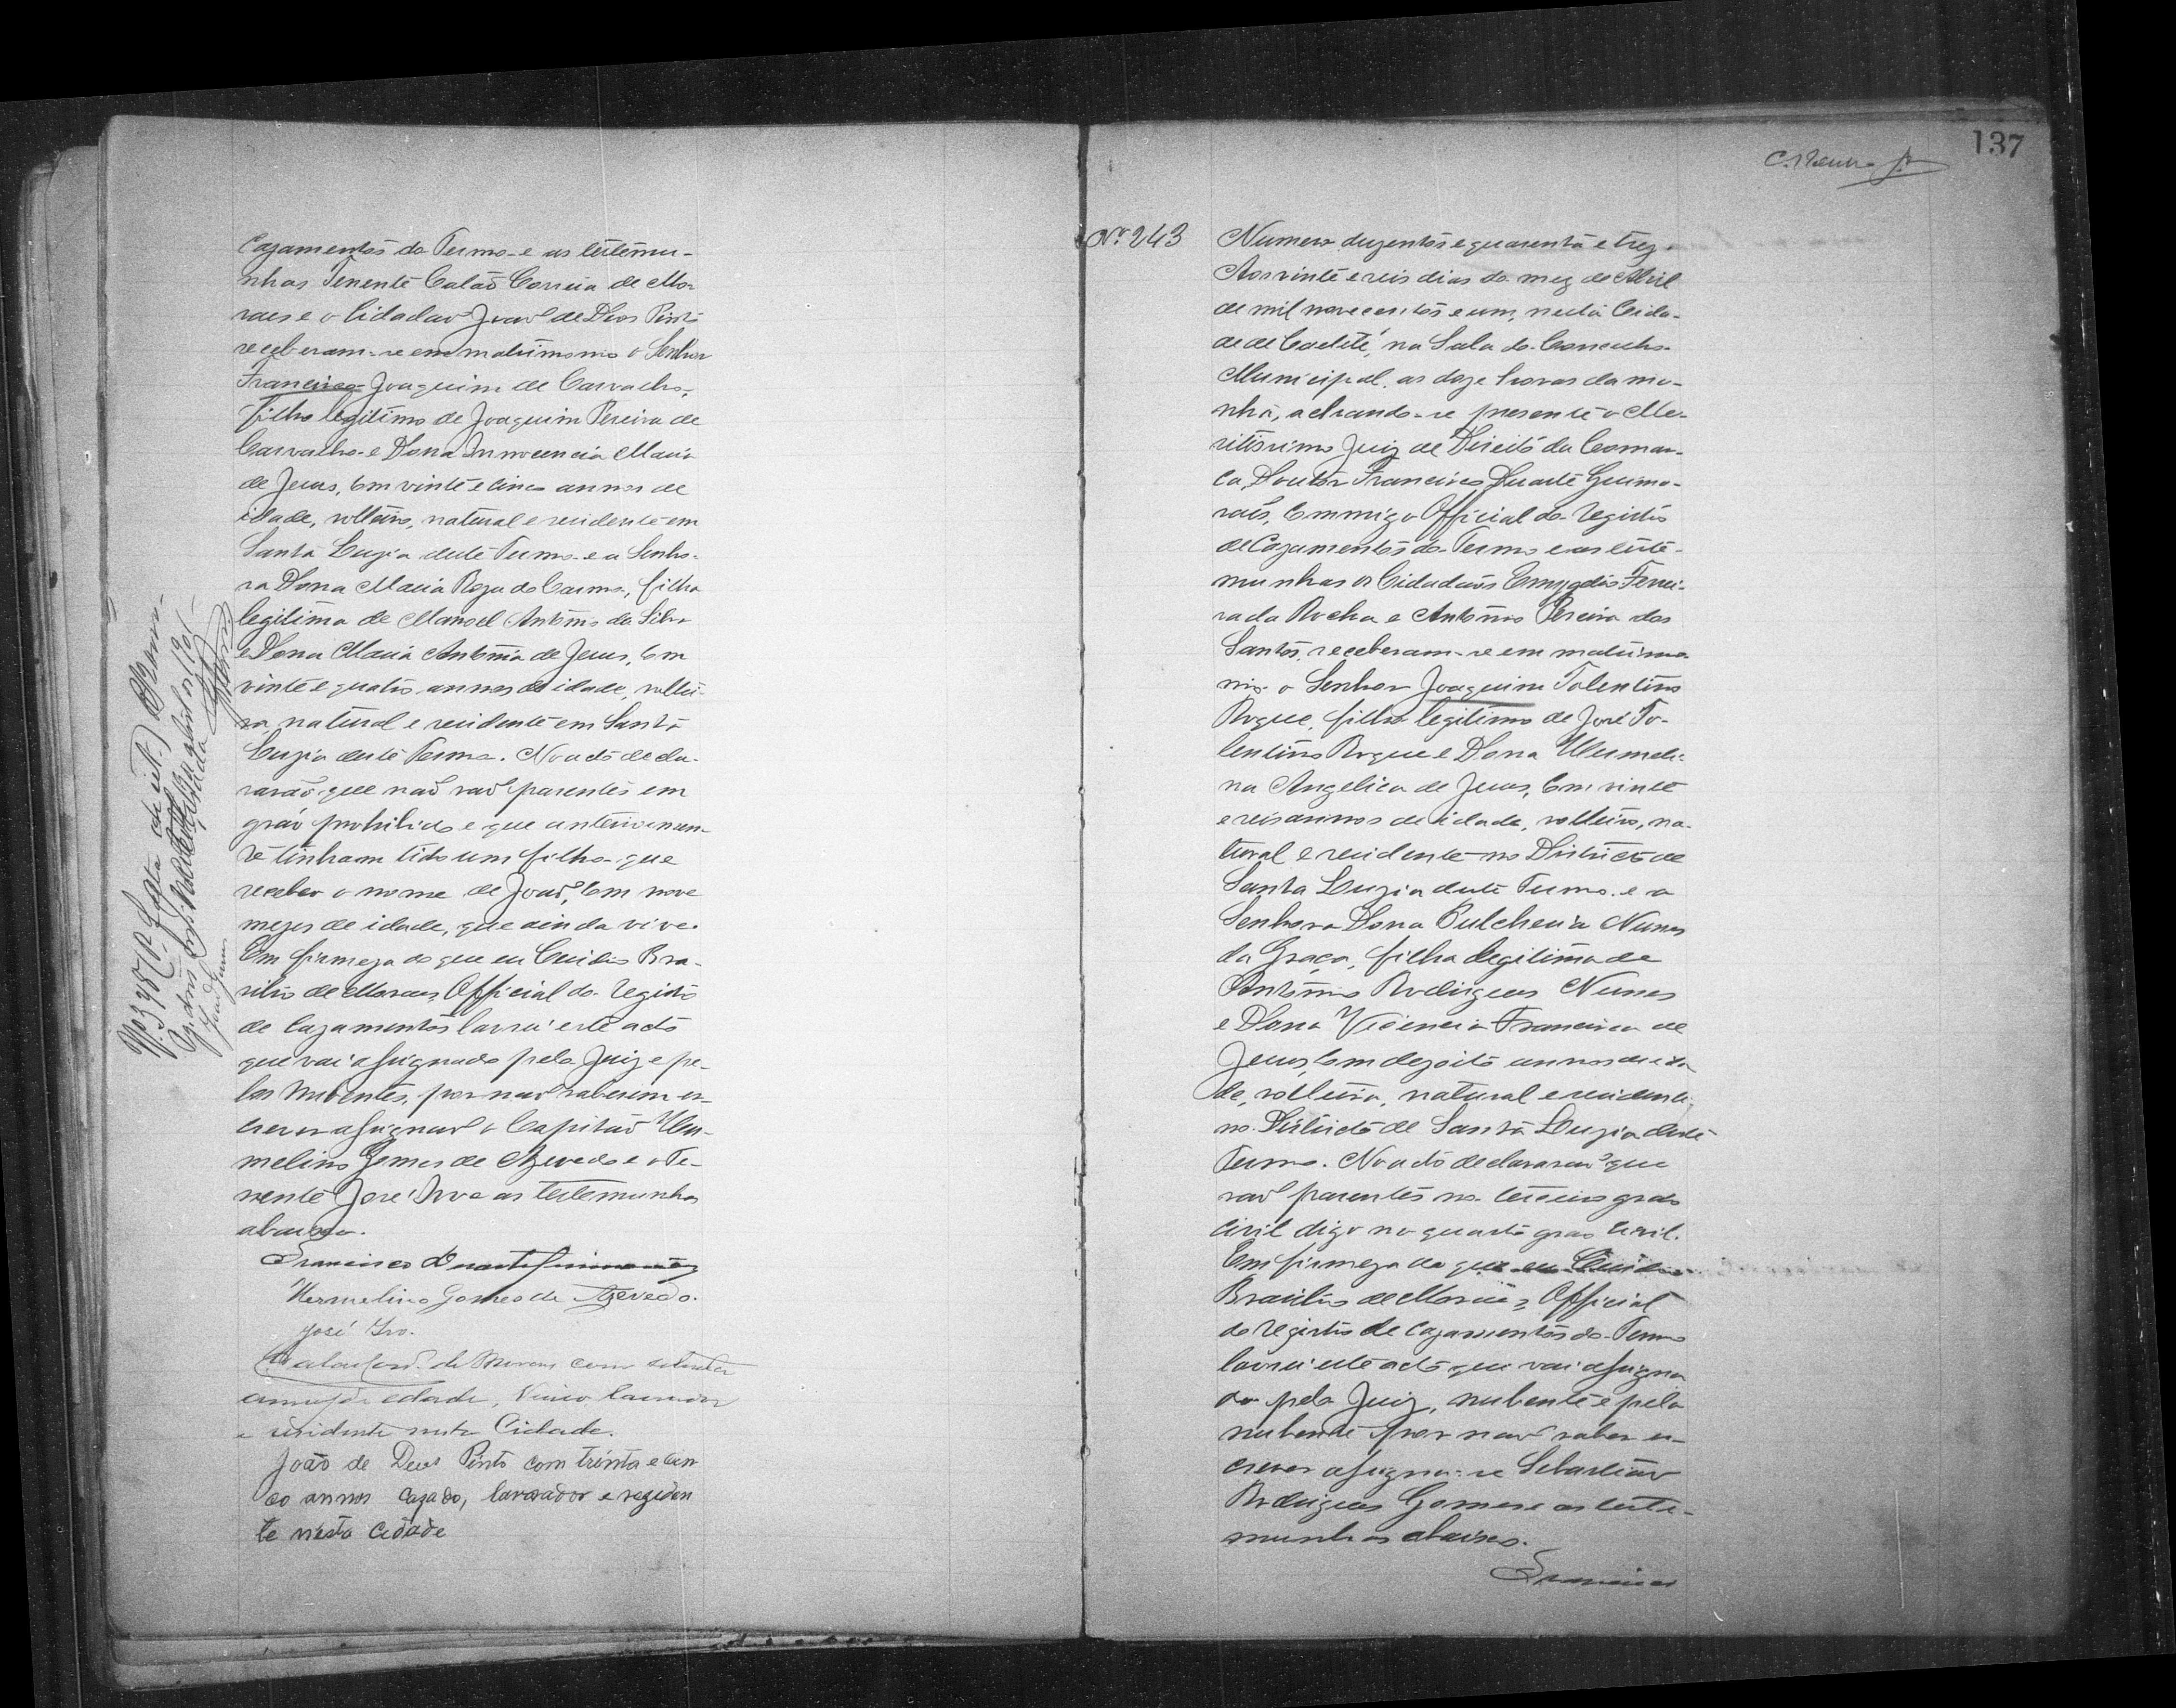 Cazamentos do Termo e as testemu-
nhas Tenente Calaõ Correia de Mo-
raes e o Cidadaõ Joaõ de Deos Pinto
receberam-se em matrimonio o Senhor
Francisco Joaquim de Carvalho,
filho legitimo de Joaquim Pereira de
Carvalho e Dona Innocencia Maria
de Jesus, com vinte e cinco annos de
idade, solteiro, natural e residente em
Santa Luzia deste Termo e a Senho-
ra Dona Maria Roza do Carmo, filha
legitima de Manoel Antonio da Silva
e Dona Maria Antonia de Jesus, com
vinte e quatro annos de idade, soltei-
ra, natural e residente em Santa
Luzia deste Termo. No acto decla-
raraõ que naõ saõ parentes em
gráo prohibido e que anteriormen-
te tinham tido um filho que
recebeo o nome de Joaõ, com nove
mezes de idade, que ainda vive.
Em firmeza do que eu Bra-
zilio de Moraes, Official do Registo
de Cazamentos lavrei este acto
que vai assignado pelo Juiz e pe-
los nubentes, por naõ saberem es-
crever assignaõ o Capitaõ Her-
melino Gomes de Azevedo e o Te-
nente José Ivo e as testemunhas
abaixo.
Francisco Duarte Guimarães
Hermelino Gomes de Azevedo.
José Ivo.
de Moraes com
annos de edade, lavrador
e residente nesta Cidade.
João de Deus Pinto com trinta e cin
co annos cazado, lavrador e reziden
te nésta cidade
137
Nº 243
Numero duzentos e quarenta e trez.
Aos vinte e seis dias do mez de Abril
de mil novecentos e um, nesta Cida-
de de Caeteté, na Sala do Concelho
Municipal, as doze horas da ma-
nhã, achando-se presente o Me-
ritissimo Juiz de Direito da Comar-
ca, Doutor Francisco Duarte Guima-
raẽs, commigo Official do Registo
de Cazamentos do Termo e as teste-
munhas os Cidadaõs Emygdio Ferrei-
ra da Rocha e Antonio Pereira dos
Santos, receberam-se em matrimo-
nio o Senhor Joaquim Tolentino
Roque, filho legitimo de José To-
lentino Roque e Dona Hermeli-
na Angelica de Jesus, com vinte
e seis annos de idade, solteiro, na-
tural e residente no Districto de
Santa Luzia deste Termo e a
Senhora Dona Pulcheria Nunes
da Graça, filha legitima de
Antonio Rodrigues Nunes
e Dona Vicencia Francisca de
Jesus, com dezoito annos de ida-
de, solteira, natural e residente
no Districto de Santa Luzia deste
Termo. No acto declararaõ que
saõ parentes no terceiro grao
civil digo no quarto grao civil.
Em firmeza do que eu
Brazilio de Moraes, Official
do Registo de Cazamentos do Termo
lavrei este acto que vai assigna
do pelo Juiz, nubente e pela
nubente por naõ saber es-
crever assigna-se Sebastiaõ
Rodrigues Gomes e as teste-
munhas abaixo.
Francisco